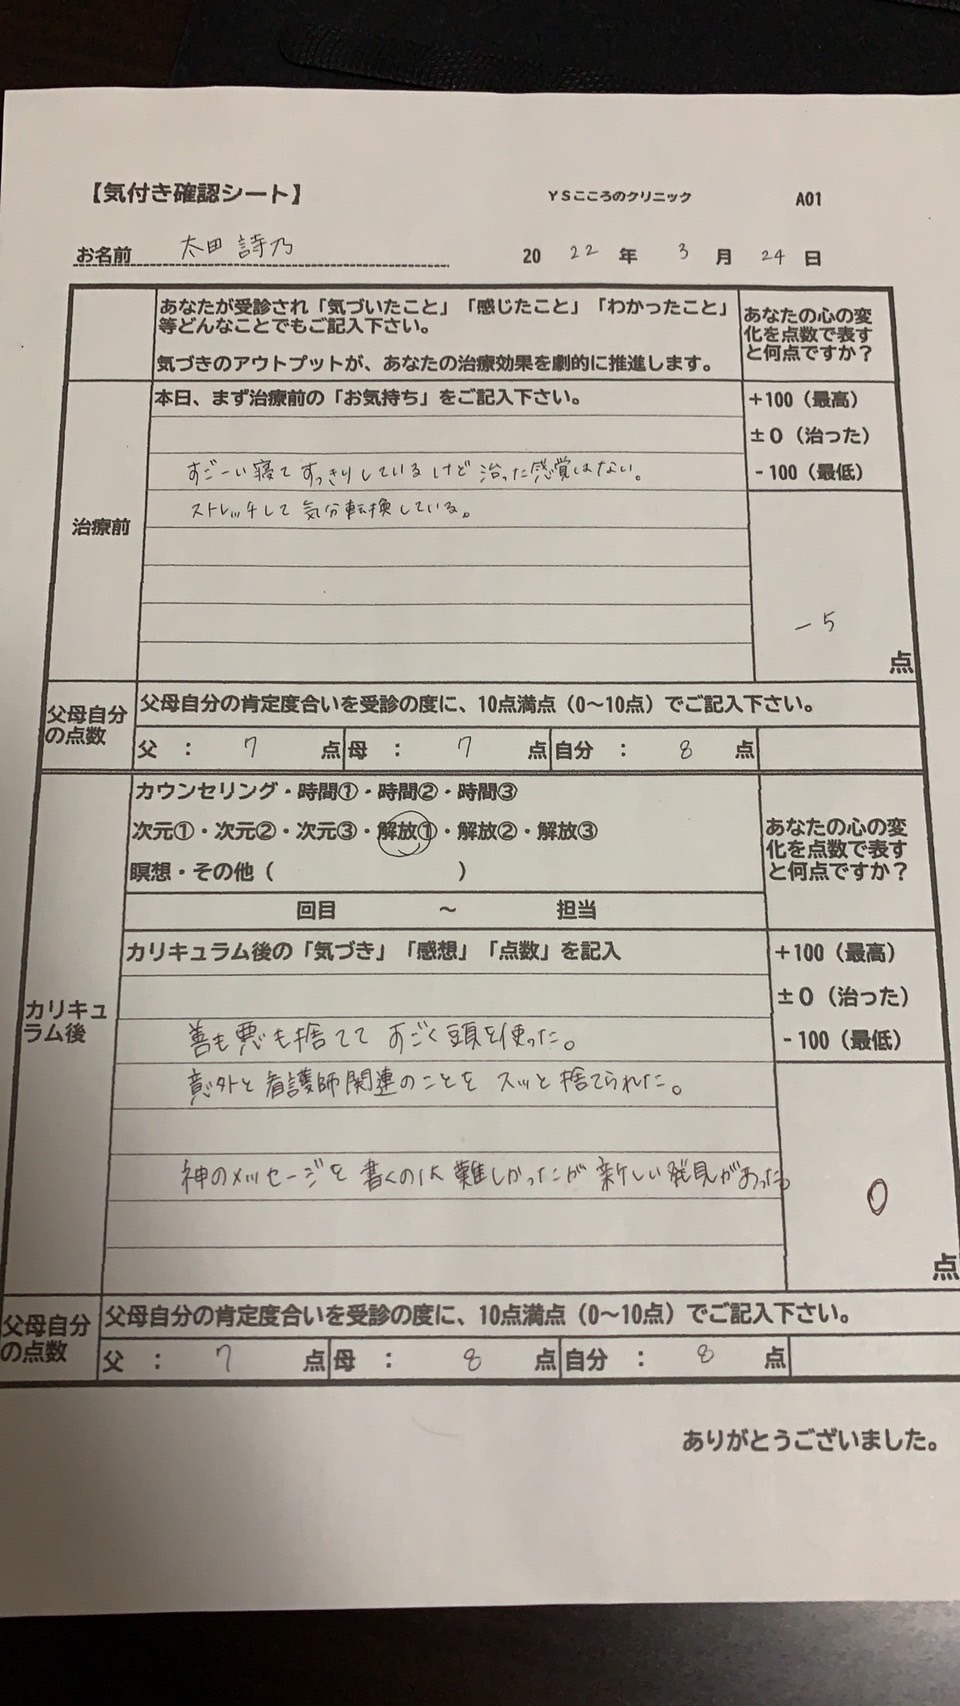 【気付き確認シート】 YSこころのクリニック A01
お名前 太田 詩乃 2022年3月24日
あなたが受診され「気づいたこと」「感じたこと」「わかったこと」
等どんなことでもご記入下さい。
気づきのアウトプットが、あなたの治療効果を劇的に推進します。
あなたの心の変
化を点数で表す
と何点ですか？
治療前
本日、まず治療前の「お気持ち」をご記入下さい。
すごーい寝てすっきりしているけど治った感覚はない。
ストレッチして気分転換している。
+100（最高）
±0（治った）
-100（最低）
-5
点
父母自分
の点数
父母自分の肯定度合いを受診の度に、10点満点（0～10点）でご記入下さい。
父 ： 7 点 母 ： 7 点 自分 ： 8 点
カリキュ
ラム後
カウンセリング・時間①・時間②・時間③
次元①・次元②・次元③・解放①・解放②・解放③
瞑想・その他（ ）
回目 ～ 担当
あなたの心の変
化を点数で表す
と何点ですか？
カリキュラム後の「気づき」「感想」「点数」を記入
善も悪も捨てて すごく頭を使った。
意外と看護師関連のことを スッと捨てられた。
神のメッセージを書くのは難しかったが新しい発見があった。
+100（最高）
±0（治った）
-100（最低）
0
点
父母自分
の点数
父母自分の肯定度合いを受診の度に、10点満点（0～10点）でご記入下さい。
父 ： 7 点 母 ： 8 点 自分 ： 8 点
ありがとうございました。